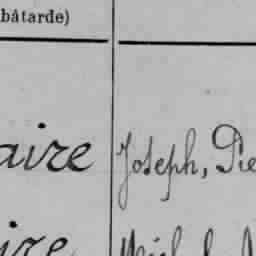 bâtarde)
aire Joseph, Pie
ire